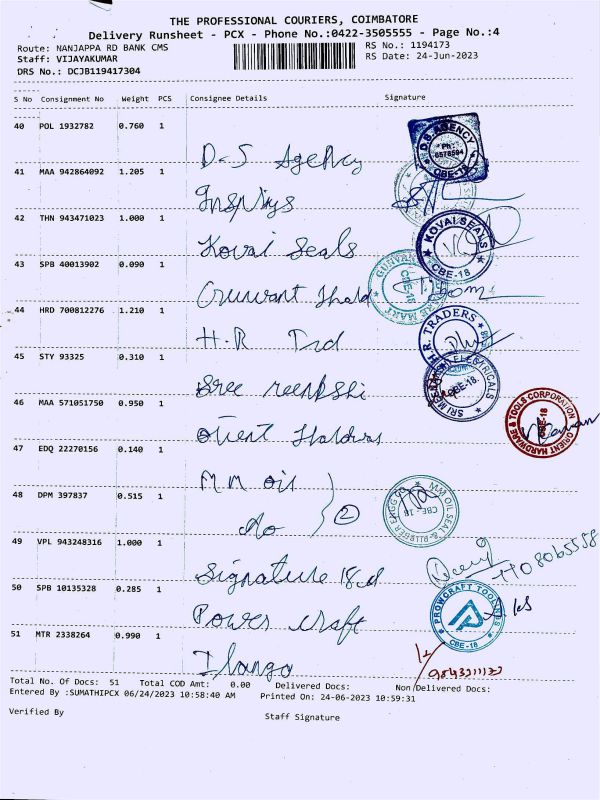 THE PROFESSIONAL COURIERS, COIMBATORE
Delivery Runsheet - PCX - Phone No.:0422-3505555 - Page No.:4
Route: NANJAPPA RD BANK CMS
RS No.: 1194173
Staff: VIJAYAKUMAR
RS Date: 24-Jun-2023
DRS No.: DCJB119417304
S No Consignment No Weight PCS Consignee Details Signature
40 POL 1932782 0.760 1
D.S AGENCY
Ph: 6578594
CBE-18
D-S Agency
41 MAA 942864092 1.205 1
42 THN 943471023 1.000 1
Kovai Seals
KOVAI SEALS
CBE-18
43 SPB 40013902 0.090 1
CBE-18
44 HRD 700812276 1.210 1
H.R Trd
H.R. TRADERS
45 STY 93325 0.310 1
Sree
CBE-18
46 MAA 571051750 0.950 1
Orient
ORIENT HARDWARE & TOOLS CORPORATION
CBE-18
47 EDQ 22270156 0.140 1
MM oil
2
48 DPM 397837 0.515 1
do
MM OIL SEAL & RUBBER ENGG CO
CBE-18
49 VPL 943248316 1.000 1
Signature
50 SPB 10135328 0.285 1
Power craft
PROWCRAFT TOOLINGS
CBE-18
51 MTR 2338264 0.990 1
Ilango
Total No. Of Docs: 51 Total COD Amt: 0.00 Delivered Docs: Non Delivered Docs:
Entered By :SUMATHIPCX 06/24/2023 10:58:40 AM Printed On: 24-06-2023 10:59:31
Verified By
Staff Signature